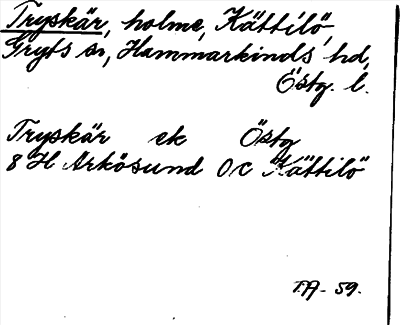 Tryskär, holme, Kättilö,
Gryts sn, Hammarkinds hd,
Östg. l.
Tryskär ek Östg
8 H Arkösund Oc Kättilö
T.A - 59.